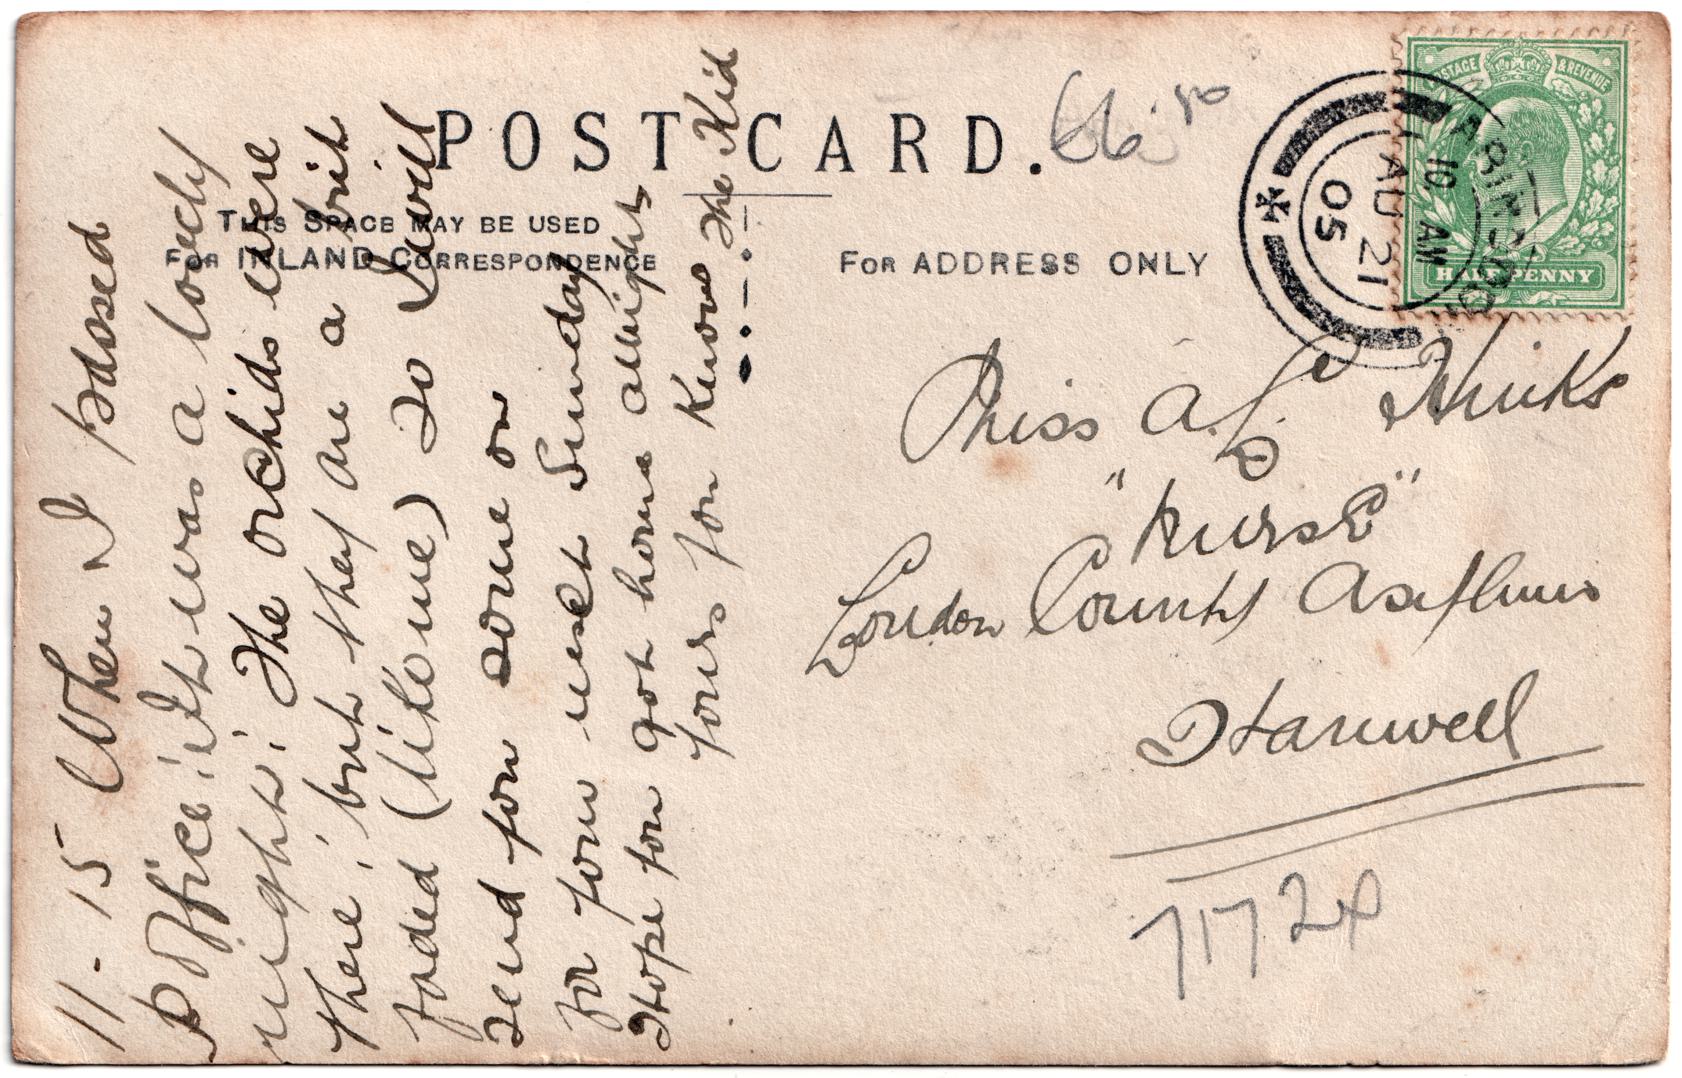 POST CARD.
THIS SPACE MAY BE USED
FOR INLAND CORRESPONDENCE
FOR ADDRESS ONLY
POSTAGE & REVENUE
HALFPENNY
10 AM
AU 21
05
11-15 When I passed
P Office it was a lovely
night; The orchids were
there; but they are a bit
faded (like me) so I will
send you some on
for your next Sunday
Hope you got home allright
Yours you know The Kid
Miss A. L. Hinks
"Nurse"
London County Asylum
Hanwell